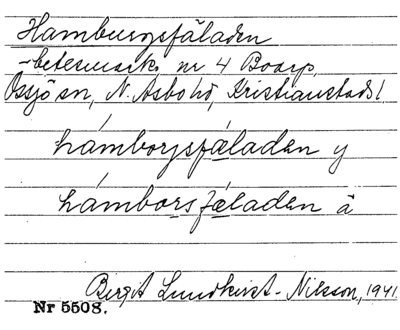 Hamburgsfäladen
-betesmark nr 4 Boarp,
Össjö sn, N. Åsbo hd, Kristianstads l.
hámborjsfæladen y
hámborsfæladen ä
Birgit Lundkvist-Nilsson, 1941
Nr 5508.